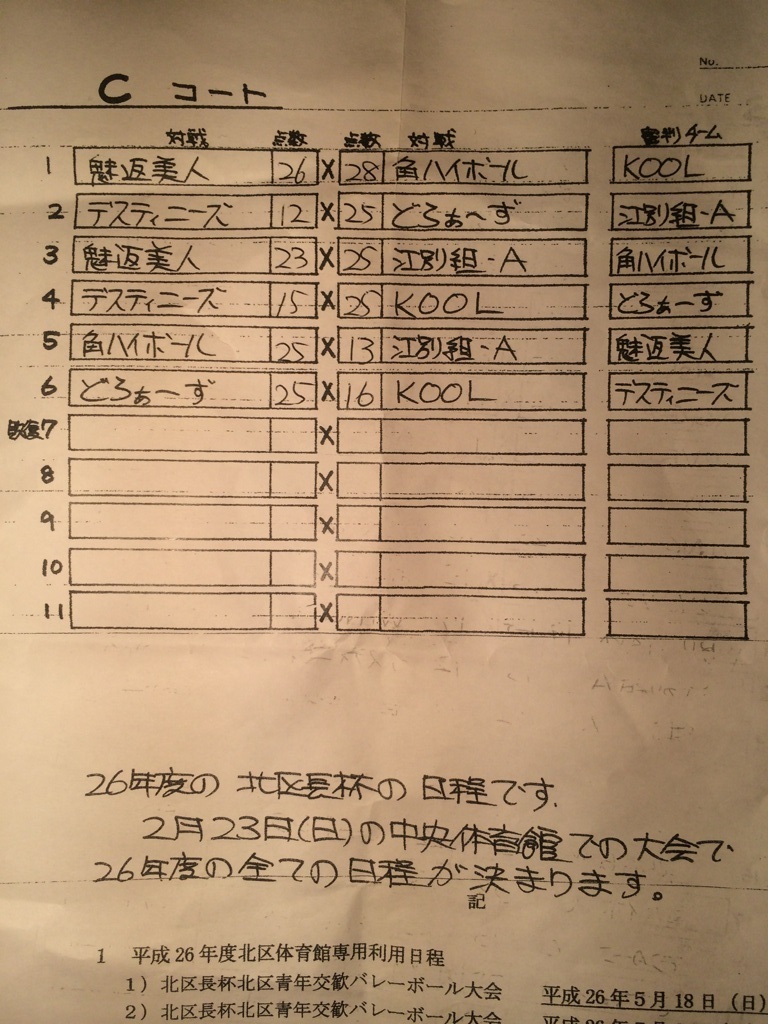 No.
C コート
DATE
対戦 点数 点数 対戦 審判チーム
1 魅返美人 26 X 28 角ハイボール KOOL
2 デスティニーズ 12 X 25 どろぁ〜ず 江別組-A
3 魅返美人 23 X 25 江別組-A 角ハイボール
4 デスティニーズ 15 X 25 KOOL どろぁーず
5 角ハイボール 25 X 13 江別組-A 魅返美人
6 どろぁ〜ず 25 X 16 KOOL デスティニーズ
7 X
8 X
9 X
10 X
11 X
26年度の 北区長杯の 日程です.
2月23日(日)の中央体育館での大会で
26年度の全ての日程が決まります。
記
1 平成26年度北区体育館専用利用日程
1）北区長杯北区青年交歓バレーボール大会 平成26年5月18日（日）
2）北区長杯北区青年交歓バレーボール大会